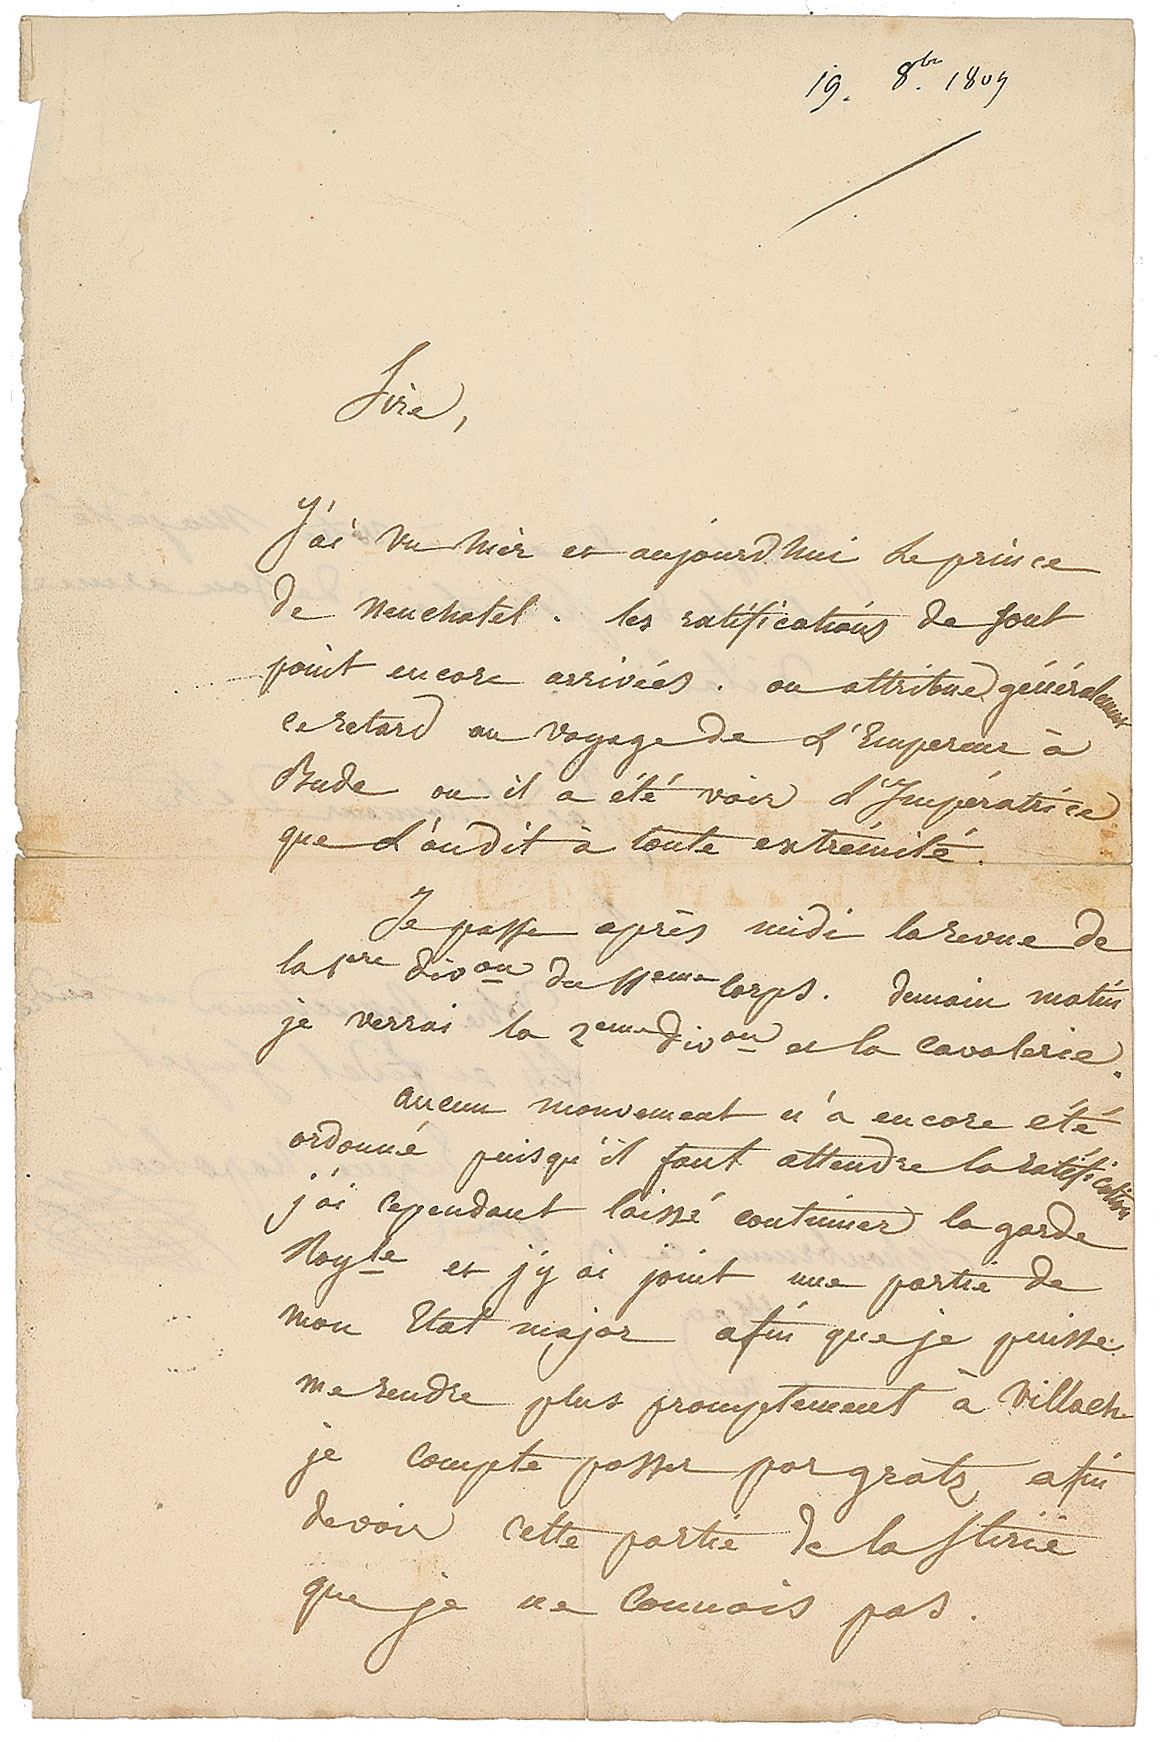 19. 8bre. 1809
Sire,
J'ai vu hier et aujourdhui le prince
de Neuchatel. les ratifications de sont
point encore arrivées. on attribue généralement
ce retard au voyage de L'Empereur à
Bude ou il a été voir L'Impératrice
que L'on dit à toute extrémité.
Je passe après midi la revue de
la 1ere divon du 11eme Corps. demain matin
je verrai la 2eme divon et la Cavalerie.
aucun mouvement n'a encore été
ordonné puisqu'il faut attendre la ratification
j'ai cependant laissé continuer la garde
Royle et j'y ai joint une partie de
mon Etat major afin que je puisse
me rendre plus promptement à Villach
je compte passer par gratz afin
de voir cette partie de la Stirie
que je ne connois pas.